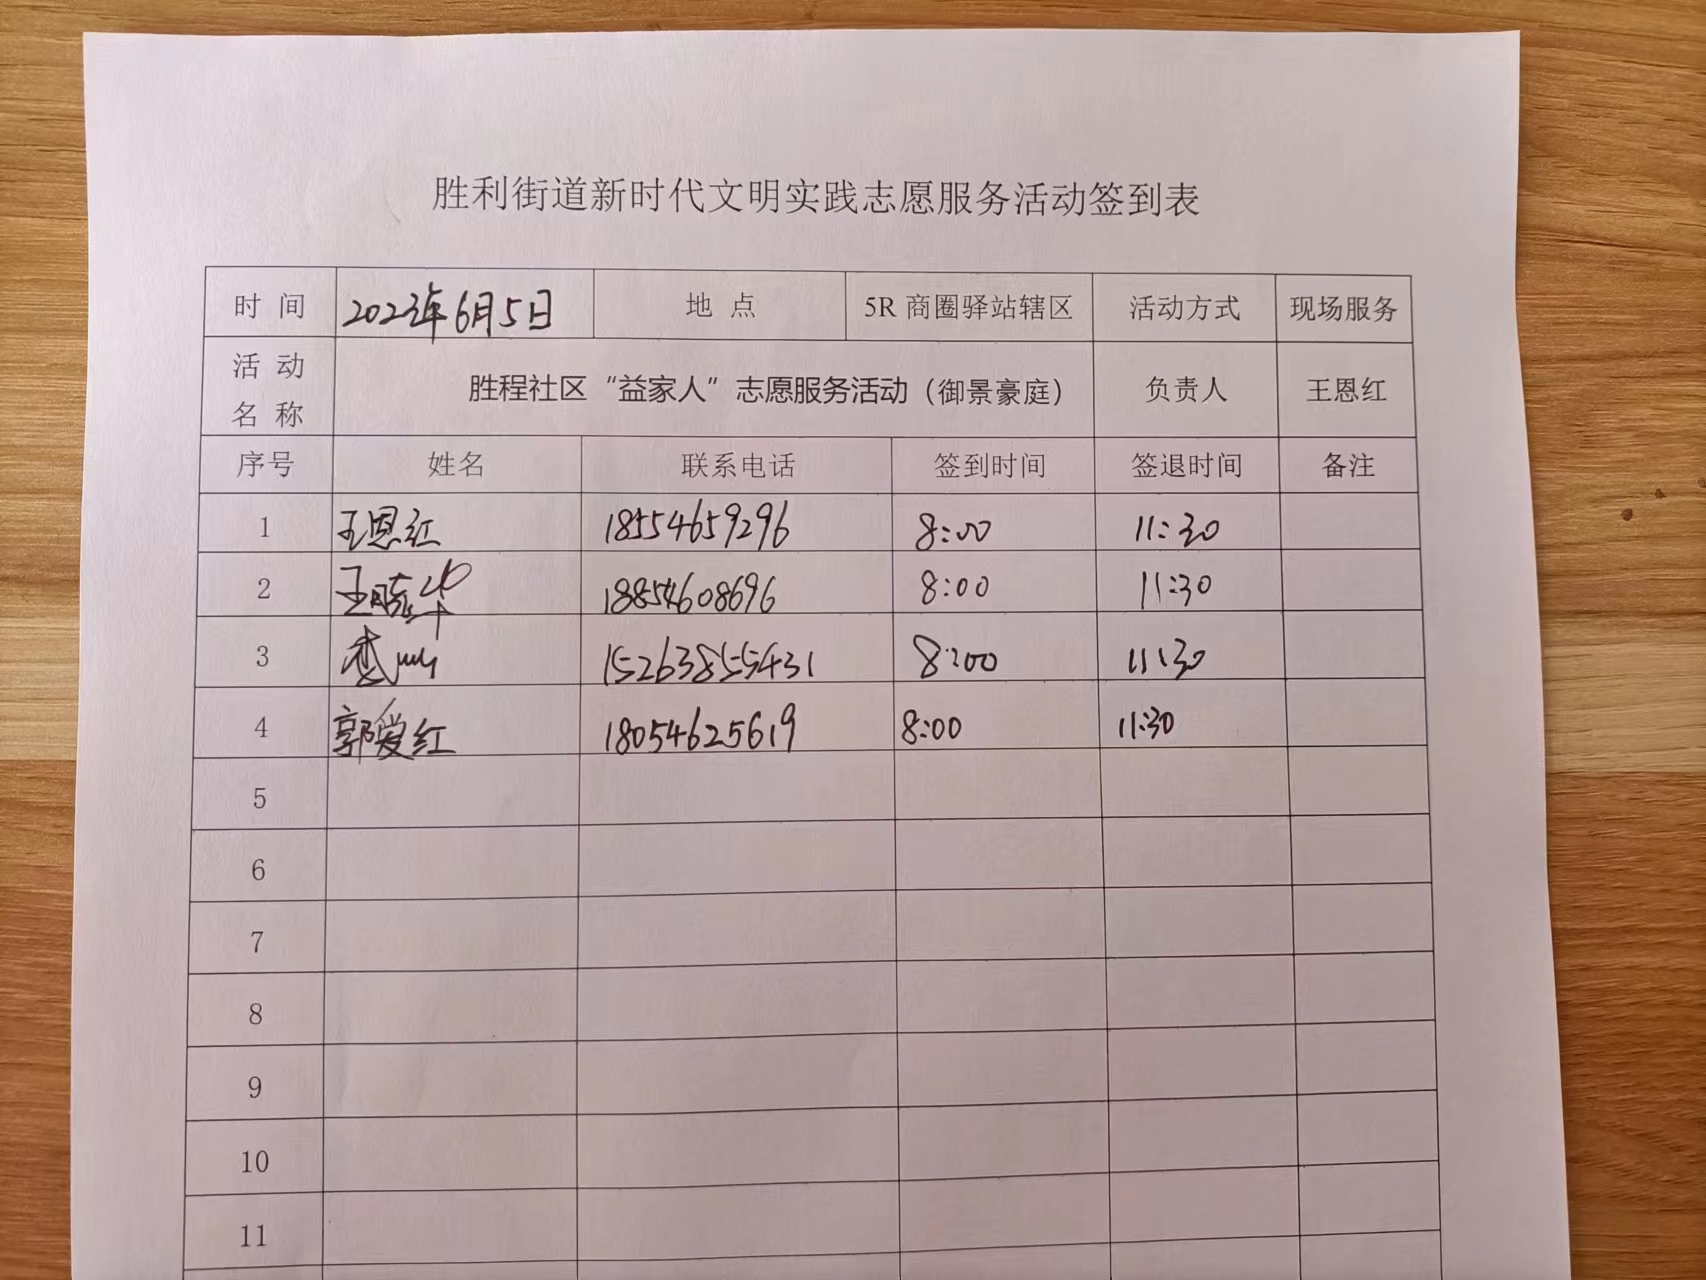 胜利街道新时代文明实践志愿服务活动签到表
时 间 2023年6月5日 地 点 5R 商圈驿站辖区 活动方式 现场服务
活 动
名 称 胜程社区“益家人”志愿服务活动(御景豪庭) 负责人 王恩红
序号 姓名 联系电话 签到时间 签退时间 备注
1 王恩红 18554659296 8:00 11:30
2 王晓华 18854608696 8:00 11:30
3 15263855431 8:00 11:30
4 郭爱红 18054625619 8:00 11:30
5
6
7
8
9
10
11